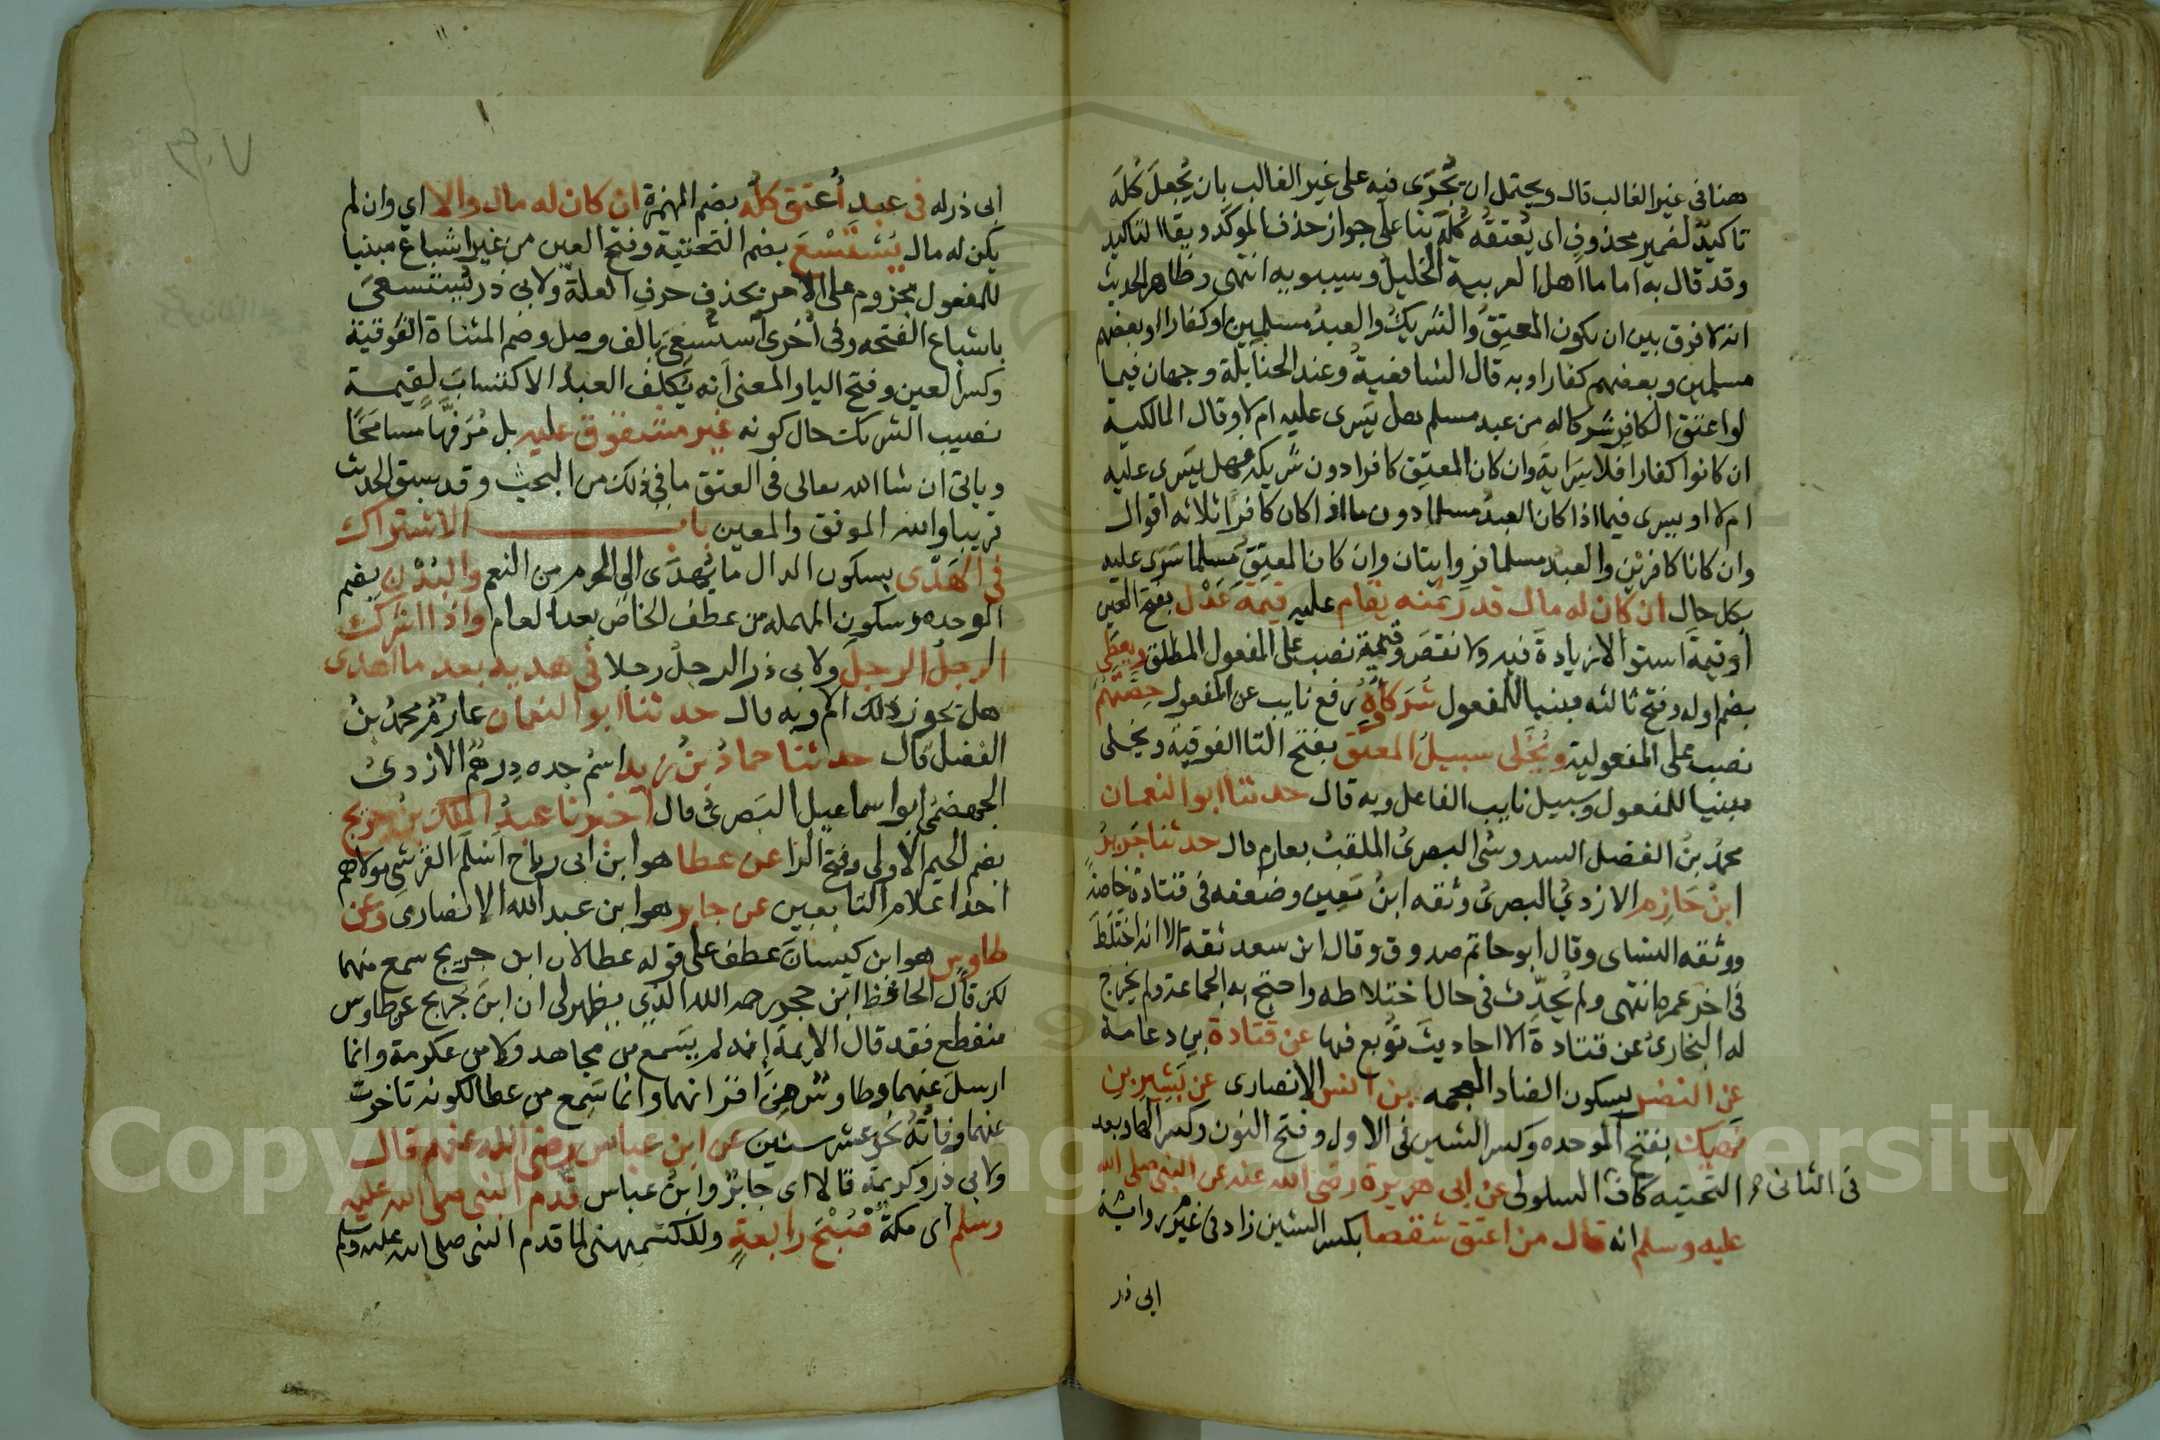 هنا فى غير الغالب قال ويحتمل ان يُجرَى فيه على غير الغالب بان يُجعلَ كُلَّه
تاكيدٌ لضمير محذوفٍ اى يُعتقه كُلَّه بناءً على جواز حذف الموكَّد وبقاا لتاكيد
وقد قال به اماما اهل العربية الخليل وسيبويه انتهى وظاهر الحديث
انه لا فرق بين ان يكون المعتِقُ والشريكُ والعبدُ مسلمين او كفارا او بعضهم
مسلمين وبعضهم كفارا وبه قال الشافعيةُ وعند الحنابلة وجهان فيما
لو اعتق الكافر شركا له من عبد مسلم هل يَسرى عليه ام لا وقال المالكيه
ان كانوا كفارا فلا سِرَاية وان كان المعتِق كافرا دون شريكه فهل يَسرى عليه
ام لا او يسرى فيما اذا كان العبدُ مسلما دون ما اذا كان كافرًا ثلاثه اقوال
وان كانا كافرَيْنِ والعبدُ مسلما فروايتان وان كان المعتِقُ مُسلما سَرَى عليه
بكل حال ان كان له مال قدر ثمنه يقام عليه قيمة عَدْل بفتح العين
اى قيمةَ استوا لا زيادة فيه ولا نقصَ وقيمة نصب على المفعول المطلق ويعطَى
بضم اوله وفتح ثالثه مبنيا للمفعول شُرَكاؤه رفع نايب عن المفعول حِصَّتَهُم
نصب على المفعولية ويُخَلَّى سبيلُ المعتَق بفتح التا الفوقية ويخلى
مبنيا للمفعول وسبيل نايب الفاعل وبه قال حدثنا ابو النعمان
محمدُ بنُ الفضل السدوسى البصرىُ الملقبُ بعارم قال حدثنا جَرِيرُ
ابنُ حَازِم الازدىُ البصرىُ وثقه ابنُ مَعِين وضعفه فى قتادةَ خاصةً
ووثقه النساى وقال ابو حاتم صدوق وقال ابن سعد ثقة الا انه اختَلَطَ
فى اخر عمره انتهى ولم يُحدِّث فى حال اختلاطه واحتج به الجماعة ولم يخرج
له البخارىُ عن قتادة الا احاديثَ تُوبع فيها عن قتادة بن دعامة
عن النضر بسكون الضاد المعجمه بن انس الانصارى عن بَشِيرِ بنِ
نَهيك بفتح الموحده وكسر الشين فى الاول وفتح النون وكسر الهاء وبعد
التحتيه كافٌ السلولى عن ابى هريرة رضى الله عنه عن النبى صلى الله
فى الثانى
عليه وسلم انه قال من اعتق شقصا بكسر الشين زاد فى غير رواية
ابى ذر
ابى ذر له فى عبدٍ اُعتِق كلّه بضم الهمزة ان كان له مال والا اي وان لم
يكن له مال يُسْتَسْعَ بضم التحتية وفتح العين من غير اشباع مبنيا
للمفعول مجزوم على الامر بحذف حرف العلة ولابى ذر يُستسعى
باشباع الفتحه وفى اُخرى اُستُسعِىَ بالف وصل وضم المثناة الفوقية
وكسر العين وفتح اليا والمعنى انه يُكلف العبدُ الاكتسابَ لقيمة
نصيب الشريك حال كونه غير مشقوق عليه بل مُرَفَّهًا مسامَحًا
وياتى ان شا الله تعالى فى العتق ما فى ذلك من البحث وقد سبق الحديث
قريبا والله الموفق والمعين باب الاشتراك
فى الهَدْى بسكون الدال ما يُهدَى الى الحرم من النعم والبُدْنِ بضم
الموحده وسكون المهمله من عطف الخاص بعد العام واذا اشرك
الرجلُ الرجلَ ولابى ذر الرجلُ رجلا فى هديه بعد ما اهدى
هل يجوز ذلك ام لا وبه قال حدثنا ابو النعمان عارمٌ محمدُ بنُ
الفضل قال حدثنا حمادُ بنُ زيد اسْمُ جده دِرهمٌ الازدىُ
الجهضمى ابو اسماعيل البَصرىُ قال اخبرنا عبدُ الملك بن جريج
بضم الجيم الاولى وفتح الرا عن عطا هو ابن ابى رباح اَسْلَمَ القرشى مولاهم
احد اعلام التابعين عن جابر هو ابن عبد الله الانصارى وعن
طاوس هو ابن كيسانَ عطف على قوله عطا لان ابن جريج سمع منهما
لكن قال الحافظ ابن حجر رحمه الله الذى يظهر لى ان ابن جُريج عن طاوس
منقطع فقد قال الايمة انه لم يَسمع من مجاهد ولا من عكرمة وانما
ارسلَ عنهما وطاوسٌ من اقرانهما وانما سَمِعَ من عطا لكونه تاخرت
عنهما وفاتُهُ نحو عشر سنين عن ابن عباس رضى الله عنهم قال
ولابى ذر وكريمة قالا اى جابرٌ وابنُ عباس قدم النبى صلى الله عليه
وسلم اى مكة صُبْحَ رابعةٍ وللكشميهنى لما قدم النبى صلى الله عليه وسلم